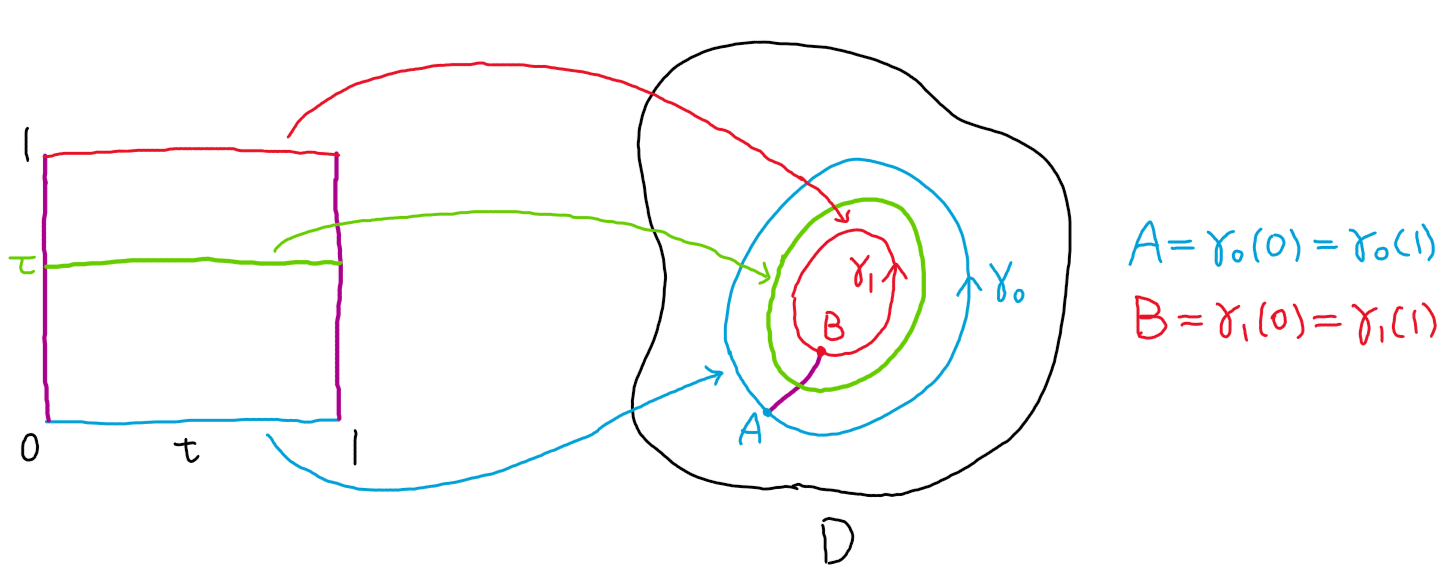 1
τ
0 t 1
γ₁
γ₀
B
A
D
A = γ₀(0) = γ₀(1)
B = γ₁(0) = γ₁(1)